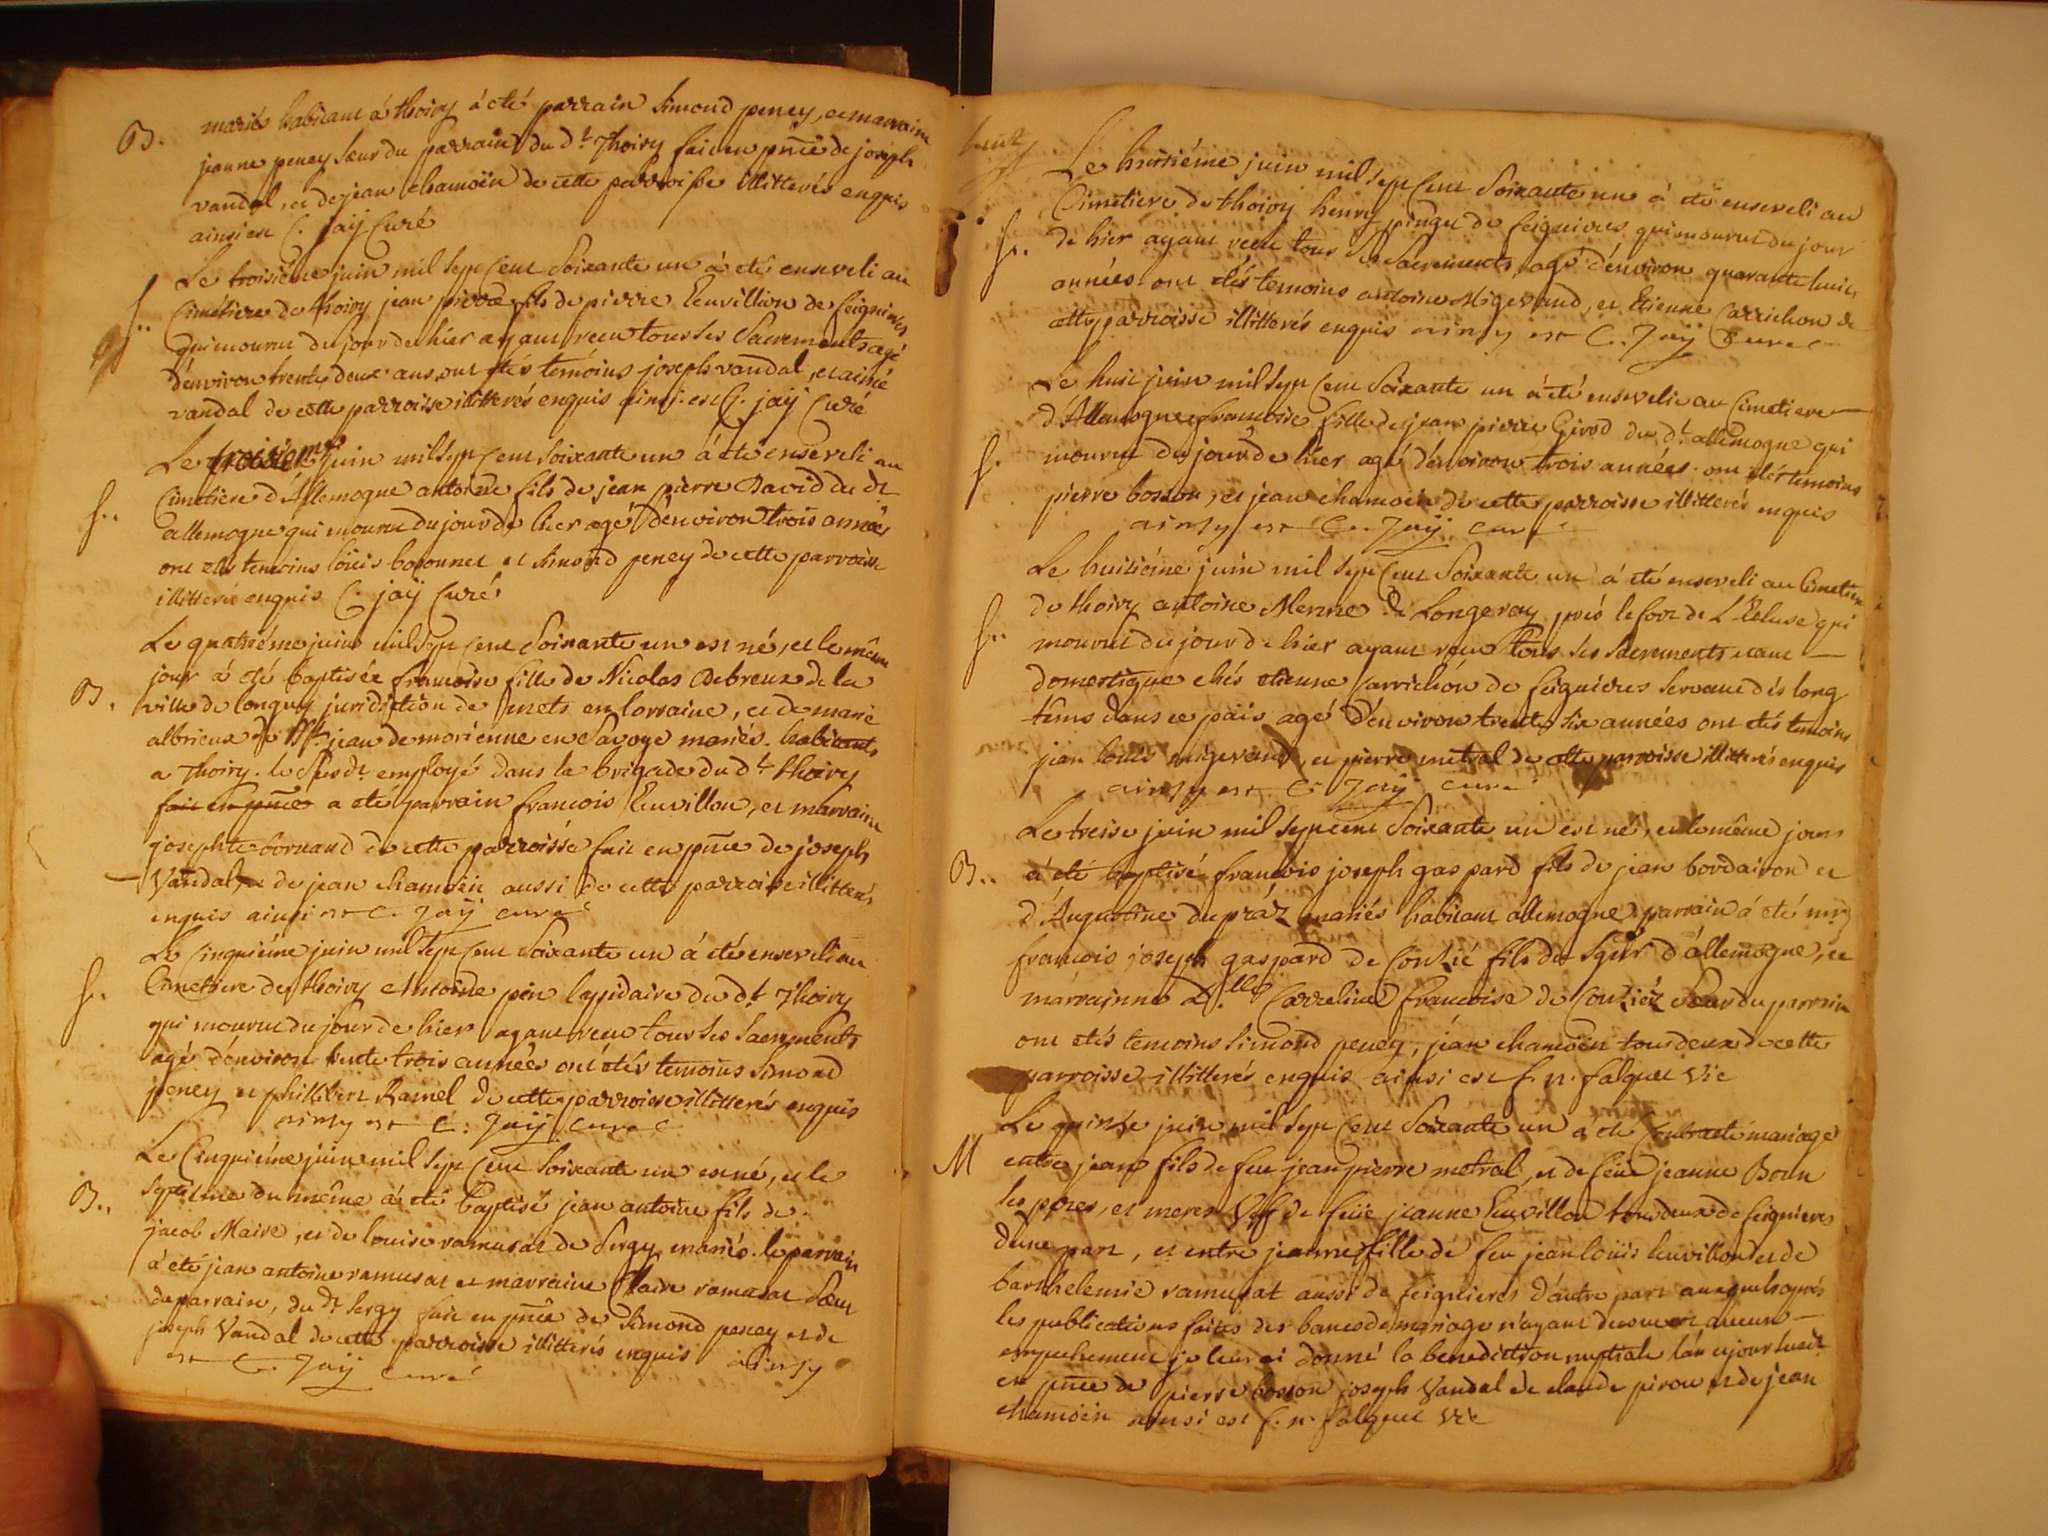 B. mariés habitant á thoiry á eté parrain Simond peney, et marraine
jeanne peney Sœur du parrain du dt Thoiry fait en pnce de joseph
vandal, et de jean chamoin de cette parroisse illitterés enquis
ainsi est C. jaÿ Curé
Le troisiéme juin mil Sept Cent Soixante un á eté enseveli au
S.. Cimétiere de thoiry jean pierre fils de pierre Leuvillion de feignieres
qui mourut du jour de hier ayant receu tous Ses Sacrements agé
d'environ trente deux ans, ont etés temoins joseph vandal, et aimé
vandal de cette parroisse illitterés enquis ainsi est C. jaÿ Curé
Le troisieme juin mil Sept Cent Soixante un á eté enseveli au
S.. Cimetiere d'Allemogne antoine fils de jean pierre David du dt
allemogne qui mourut du jour de hier agé d'environ trois années
ont etés temoins loüis bosonnet et Simond peney de cette parroisse
illitterés enquis C. jaÿ Curé
Le quatriéme juin mil Sept Cent Soixante un est né, et le même
jour á eté baptisée francoise fille de Nicolas Debreux de la
B. ville de longuy juridiction de mets en lorraine, et de marie
albrieux de St jean de moriénne en Savoye mariés habitants
a Thoiry. le Susdt employé dans la brigade du dt thoiry
fait en pnce a eté parrain francois Leuvillon, et marraine
josephte bornand de cette parroisse fait en pnce de joseph
Vandal, et de jean chamoin aussi de cette parroisse illitterés
enquis ainsi est C. Jaÿ curé
Le Cinquiéme juin mil Sept Cent Soixante un á eté enseveli au
S. Cimetiere de thoiry Antoine pin lapidaire du dt Thoiry
qui mourut du jour de hier ayant receu tous Ses Sacrements
agé d'environ trente trois années ont etés temoins Simond
peney et phillibert Ramel de cette parroisse illitterés enquis
ainsy est C. Jaÿ Curé
Le Cinquiéme juin mil Sept Cent Soixante un est né, et le
B.. Septiéme du même á eté baptisé jean antoine fils de
jacob Maire, et de louise ramusat de Sergy mariés. le parrain
á eté jean antoine ramusat et marraine Claire ramusat Sœur
du parrain, du dt Sergy fait en pnce de Simond peney et de
joseph Vandal de cette parroisse illitterés enquis ainsy
est C. Jaÿ curé
Le huitiéme juin mil Sept Cent Soixante un á eté enseveli au
Cimetiere de thoiry henry pinget de feignieres qui mourut du jour
S.. de hier ayant receu tous Ses Sacrements, agé d'environ quarante huit
années ont etés temoins antoine Migerand, et Etienne Carrichon de
cette parroisse illitterés enquis ainsy est C. Jaÿ Curé
Le huit juin mil Sept Cent Soixante un á eté ensevelie au Cimetiere
d'Allemogne francoise fille de jean pierre Girod du dt allemogne qui
S. mourut du jour de hier agé d'environ trois années. ont etés temoins
pierre bosson, et jean chamoin de cette parroisse illitterés enquis
ainsy est C. Jaÿ curé
Le huitiéme juin mil Sept Cent Soixante un á eté enseveli au Cimetiere
de thoiry antoine Merme de Longeray prés le fort de L'Ecluse qui
S.. mourut du jour de hier ayant receu tous Ses Sacrements etant
domestique chés etienne Carrichon de feignieres Servant dés long
têms dans ce païs agé d'environ trente Six années ont etés temoins
jean loüis migerand, et pierre metral de cette parroisse illitterés enquis
ainsy est C. Jaÿ curé
Le treise juin mil Sept cent Soixante un est né, et le même jour
B.. á eté baptisé francois joseph gaspard fils de jean bordairon et
d'Augustine dupráz mariés habitant alemogne. parrain á eté mr
francois joseph gaspard de Conzié fils du Sgnr d'allemogne, et
marrainne D.lle Carreline francoise de Conziéz Sœur du parrain
ont etés temoins Simond peney, jean chamoin tous deux de cette
parroisse illitterés enquis ainsi est f. n. falquet Vic
Le quinse juin mil Sept Cent Soixante un á eté Contracté mariage
M entre jean fils de feu jean pierre metral, et de feüe jeanne Boun
les peres, et meres Veff de feüe jeanne Leuvillon tous deux de feigniere
d'une part, et entre jeanne fille de feu jean loüis leuvillon et de
barthelemie ramusat aussi de feignieres d'autre part auxquels aprés
les publications faites des bancs de mariage n'ayant decouvert aucun
empechement je leur ai donné la benediction nuptiale l'an et jour susdt
en pnce de pierre bosson joseph Vandal de claude pirou et de jean
chamoin ainsi est f. n. falquet Vic